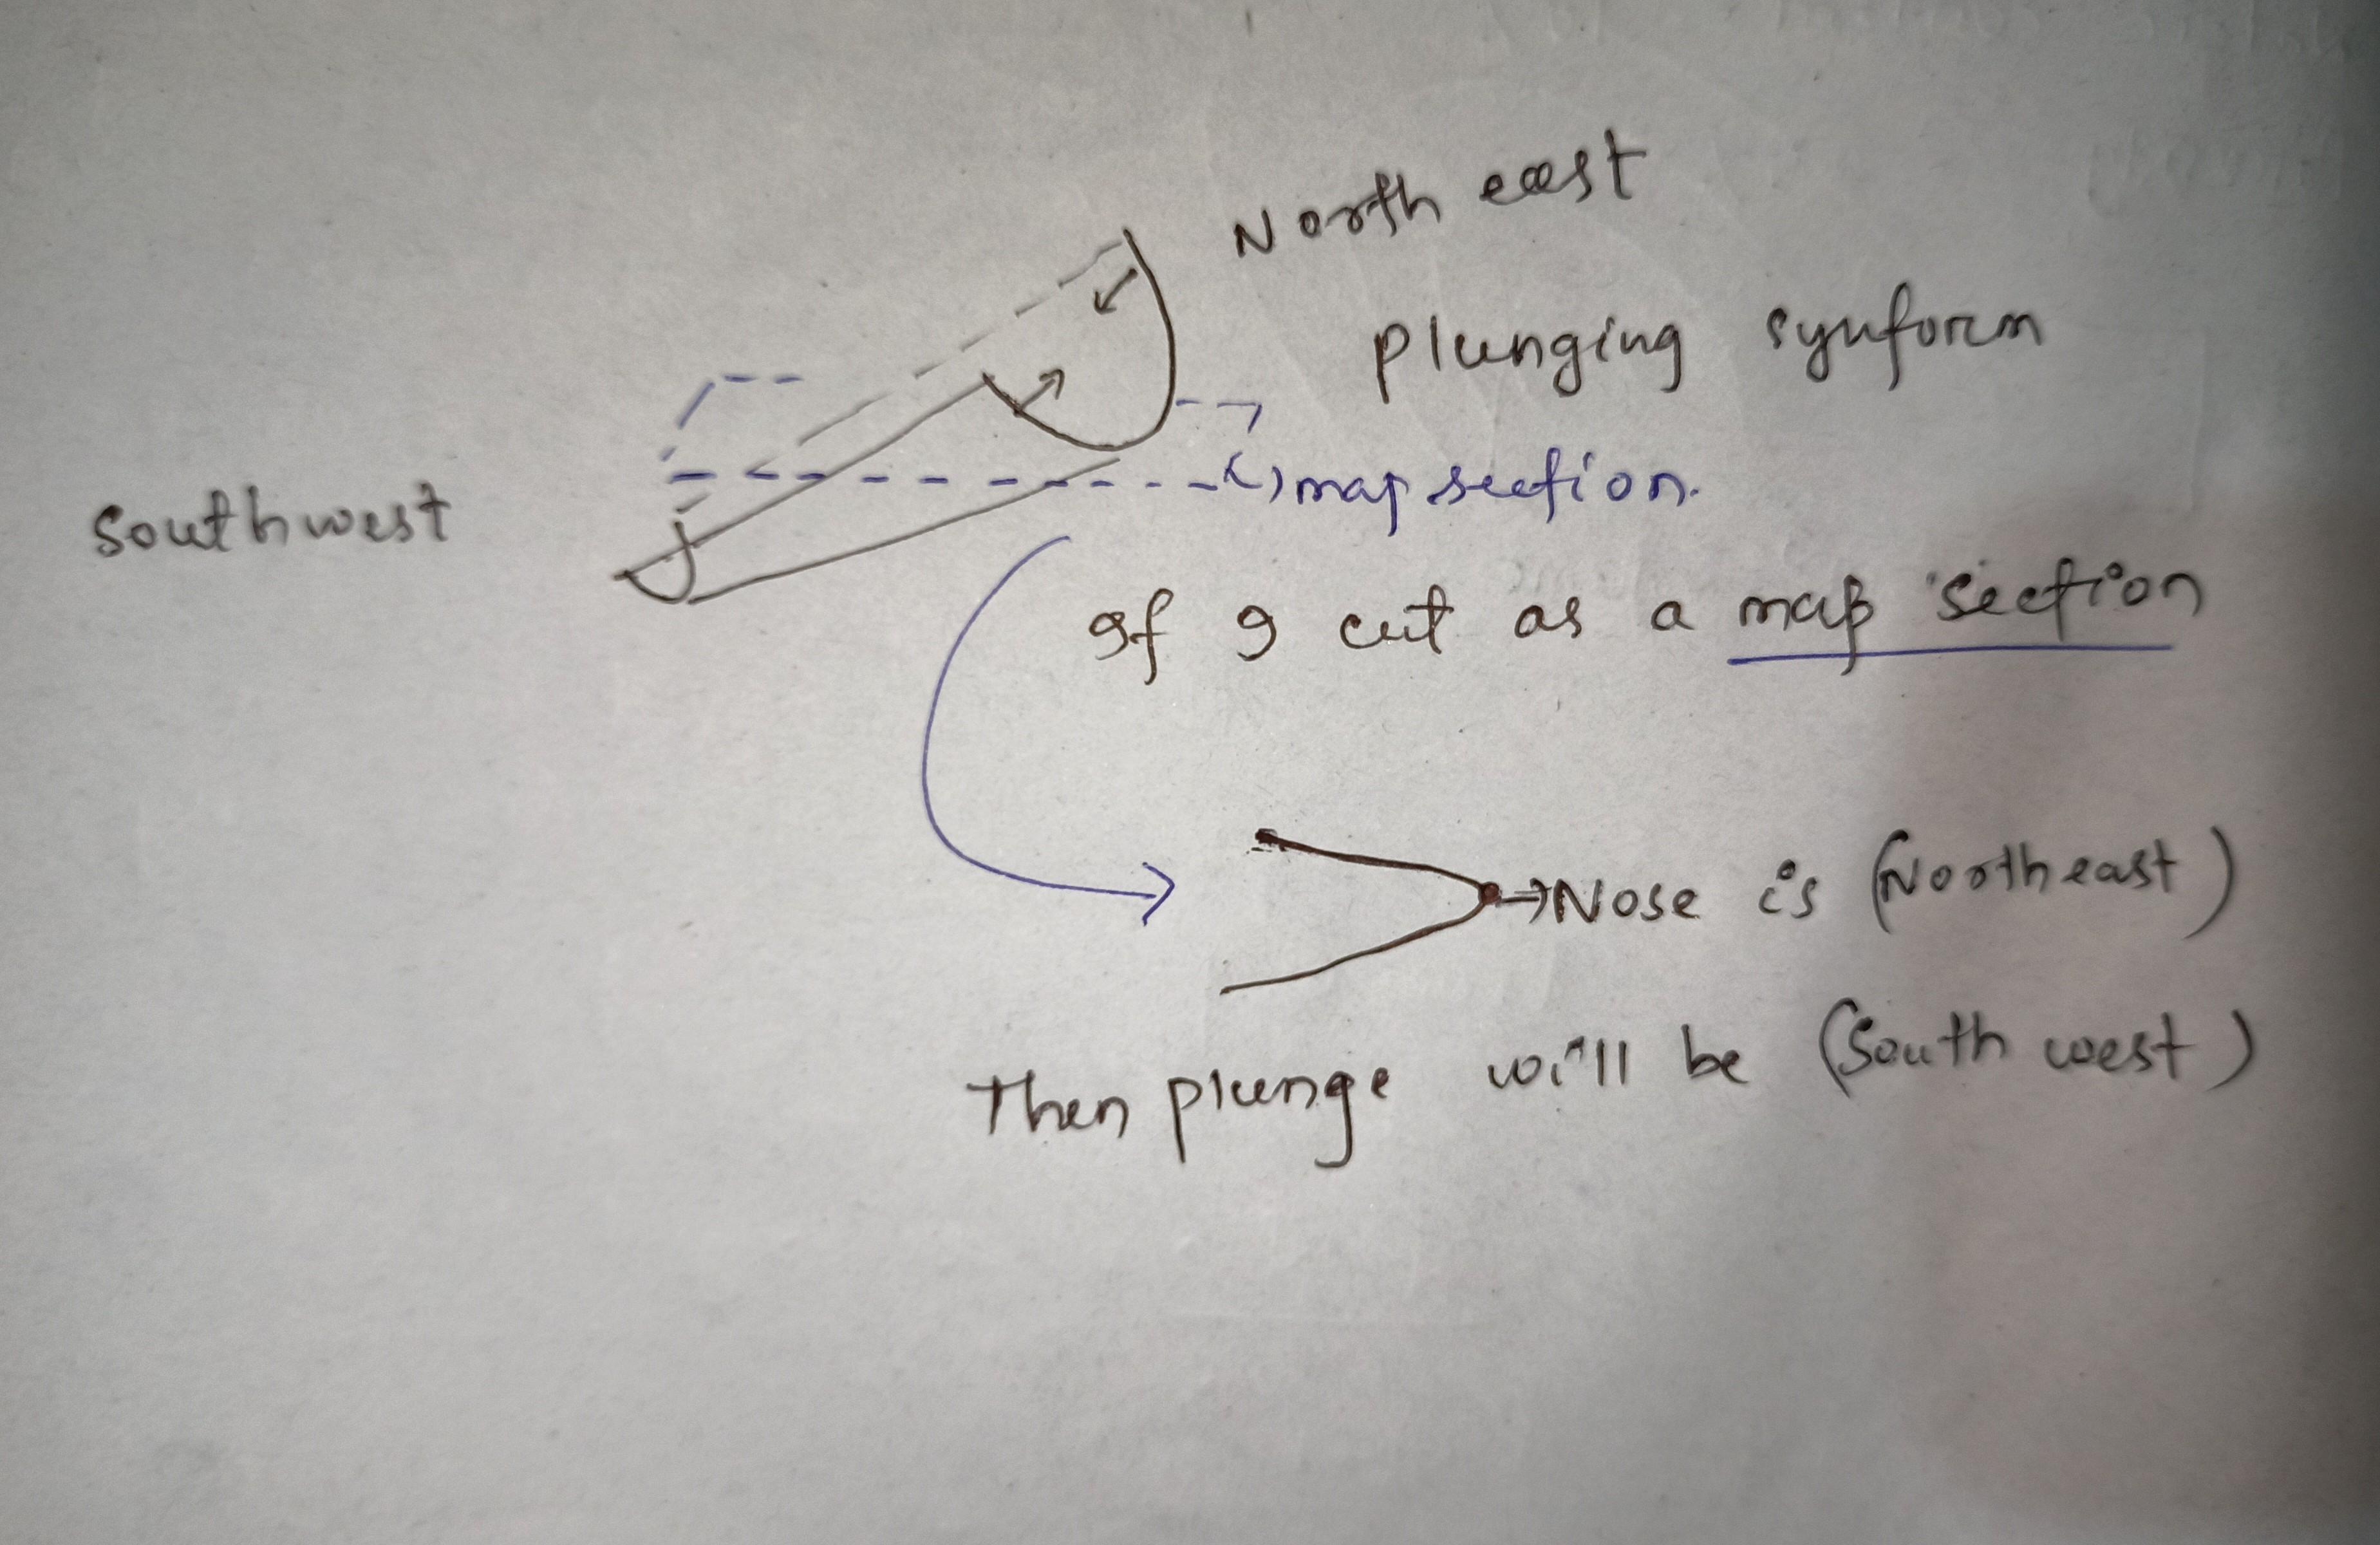 North east
plunging synform
map section.
Southwest
If I cut as a map section
Nose is (Northeast)
Then plunge will be (South west)